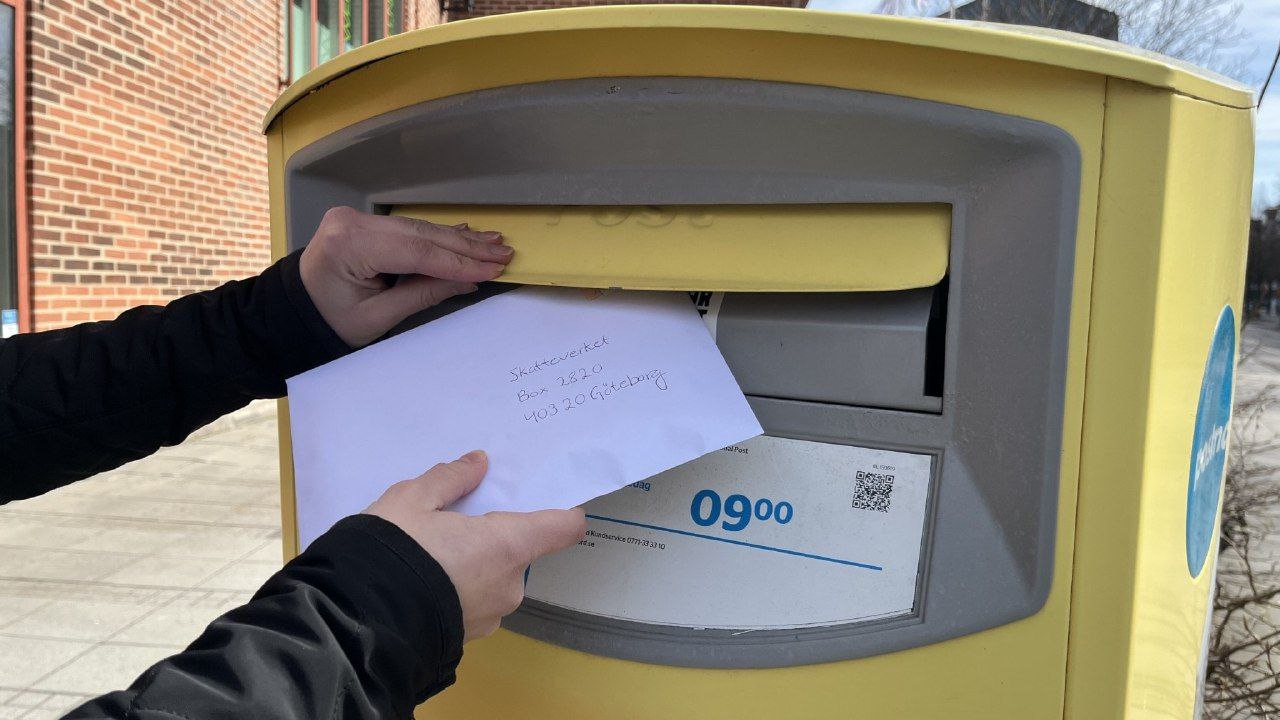 Post
Skatteverket
Box 2820
403 20 Göteborg
nal Post
dag
0900
d Kundservice 0771-33 33 10
ord.se